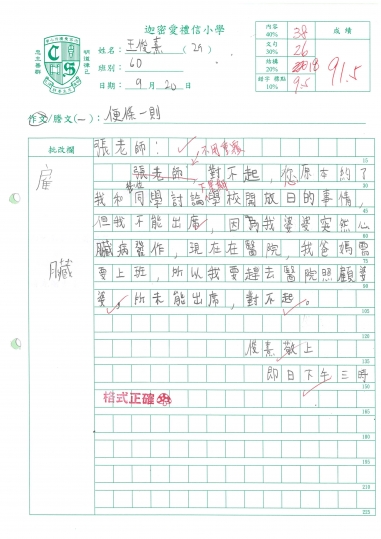 迦密愛禮信小學
內容 40% 38 成績
文句 30% 26
結構 20% 18
錯字 標點 10% 9.5
91.5
姓名：王俊熹 (29)
班別：6D
日期：9月20日
作文/謄文(一)：便條一則
批改欄
張老師：
不用寫
張老師，對不起，您原本約了
下星期
我和同學討論學校開放日的事情，
但我不能出席，因為我婆婆突然心
臟病發作，現在在醫院，我爸媽需
要上班，所以我要趕去醫院照顧婆
婆，所未能出席，對不起。
俊熹敬上
即日下午三時
格式正確
雇
臟
15
30
45
60
75
90
105
120
135
150
165
180
195
210
225